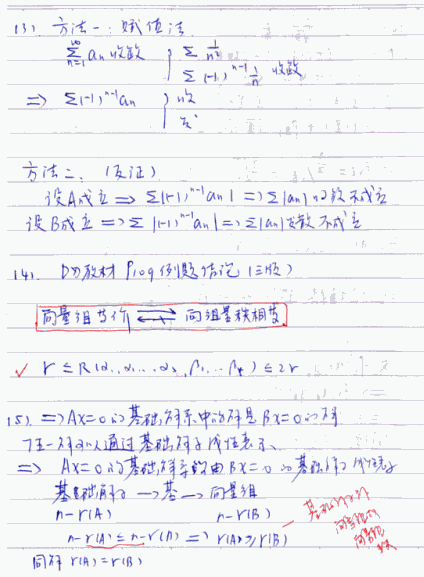 (3). 方法一: 赋值法
∞∑n=1 an 收敛 { ∑ 1/n²
∑(-1)^{n-1} 1/n 收敛
=> ∑(-1)^{n-1}an } 收
发
方法二、(反证)
设A成立 => ∑|(-1)^{n-1}an| => ∑|an| 收敛 不成立
设B成立 => ∑|(-1)^{n-1}an| => ∑|an| 发散 不成立
(4). 教材 例题结论 (三版)
向量组等价 向组其秩相等
✓ r ≤ R(α1, α2 ... αs, β1 ... βt) ≤ 2r
(5). => Ax=0 的基础解系中的解是 Bx=0 的解
任一解可以通过基础解系线性表示、
=> Ax=0 的基础解系能由 Bx=0 的基础解系线性表示
基础解系 —> 基 —> 向量组
n-r(A) n-r(B)
n-r(A) ≤ n-r(B) => r(A) ≥ r(B)
向量组的
同解 r(A)=r(B)